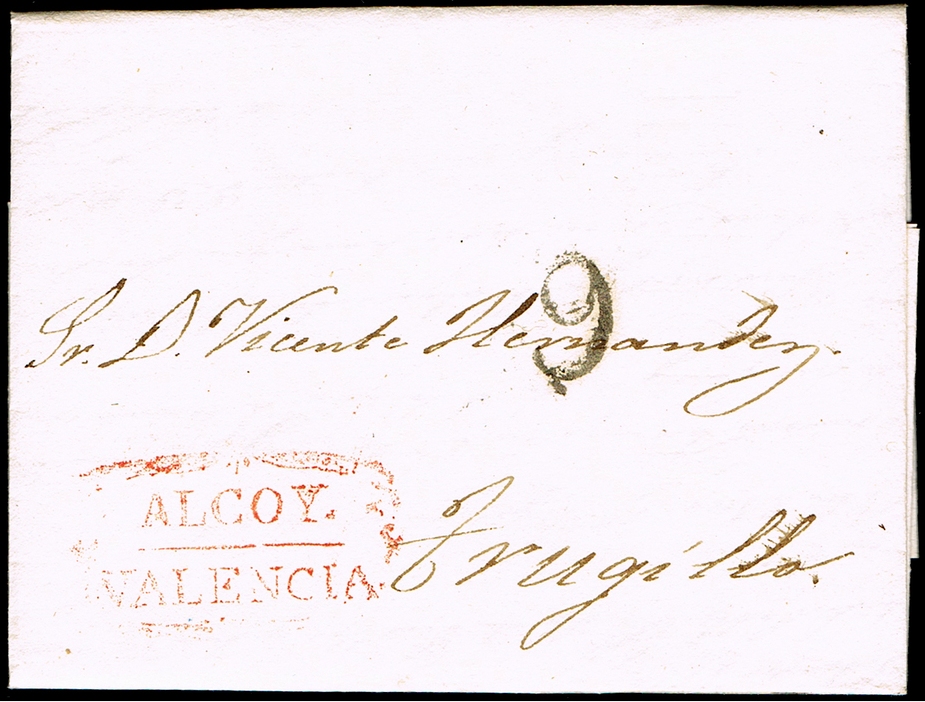 9
Sr. D. Vicente Hernandez.
ALCOY.
VALENCIA
Trugillo.